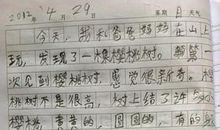 2012年4月29日 星期日 天气
今天，我和爸爸妈妈在山上
玩，发现了一棵樱桃树。我第一
次见到樱桃树，感觉很新奇。樱
桃树不是很高，树上结了许多
樱桃，青青的，圆圆的，有的